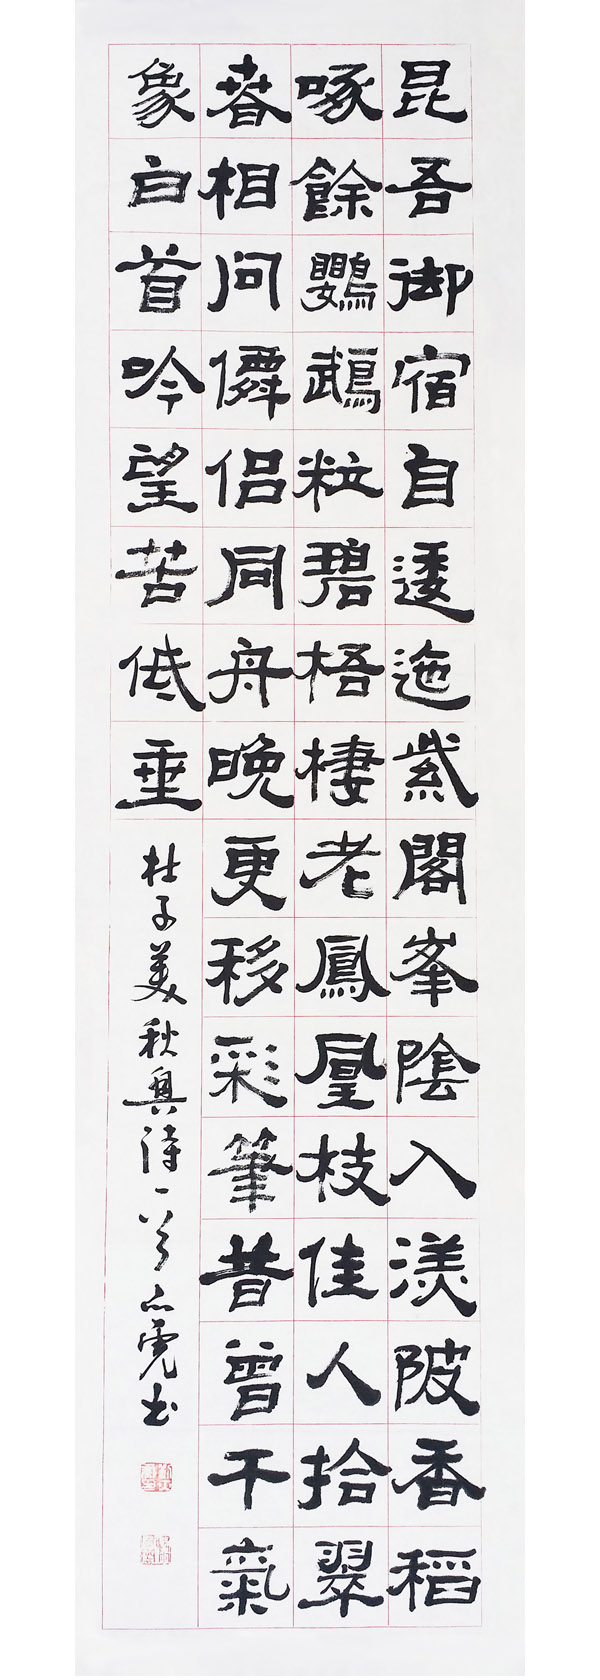 昆吾御宿自逶迤紫閣峯陰入渼陂香稻
啄餘鸚鵡粒碧梧棲老鳳凰枝佳人拾翠
春相問僊侶同舟晚更移彩筆昔曾干氣
象白首吟望苦低垂
杜子美秋興詩一首书